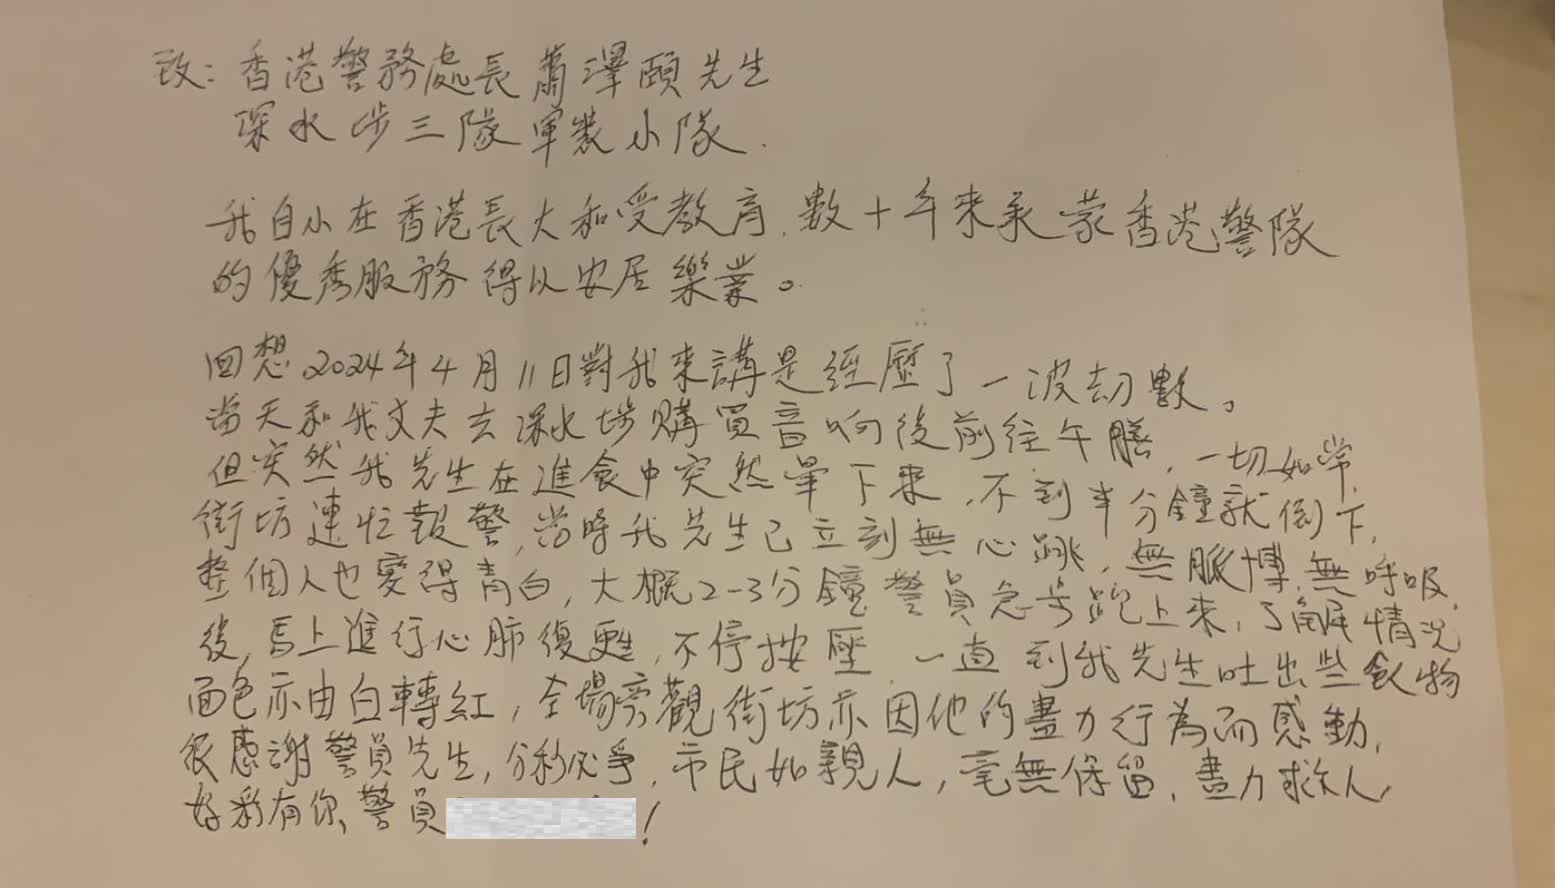 致：香港警務處長蕭澤頤先生
深水埗三隊軍裝小隊.
我自小在香港長大和受教育，數十年來承蒙香港警隊
的優秀服務得以安居樂業。
回想2024年4月11日對我來講是經歷了一波劫數。
當天和我丈夫去深水埗購買音响後前往午膳，一切如常，
但突然我先生在進食中突然暈下來，不到半分鐘就倒下，
街坊連忙報警，當時我先生已立刻無心跳，無脈博，無呼吸，
整個人也變得青白，大概2-3分鐘警員急步跑上來，了解情況
後，馬上進行心肺復甦，不停按壓，一直到我先生吐出些飲物
面色亦由白轉紅，全場旁觀街坊亦因他的盡力行為而感動，
很感謝警員先生，分秒必爭，市民如親人，毫無保留，盡力救人，
好彩有你，警員！